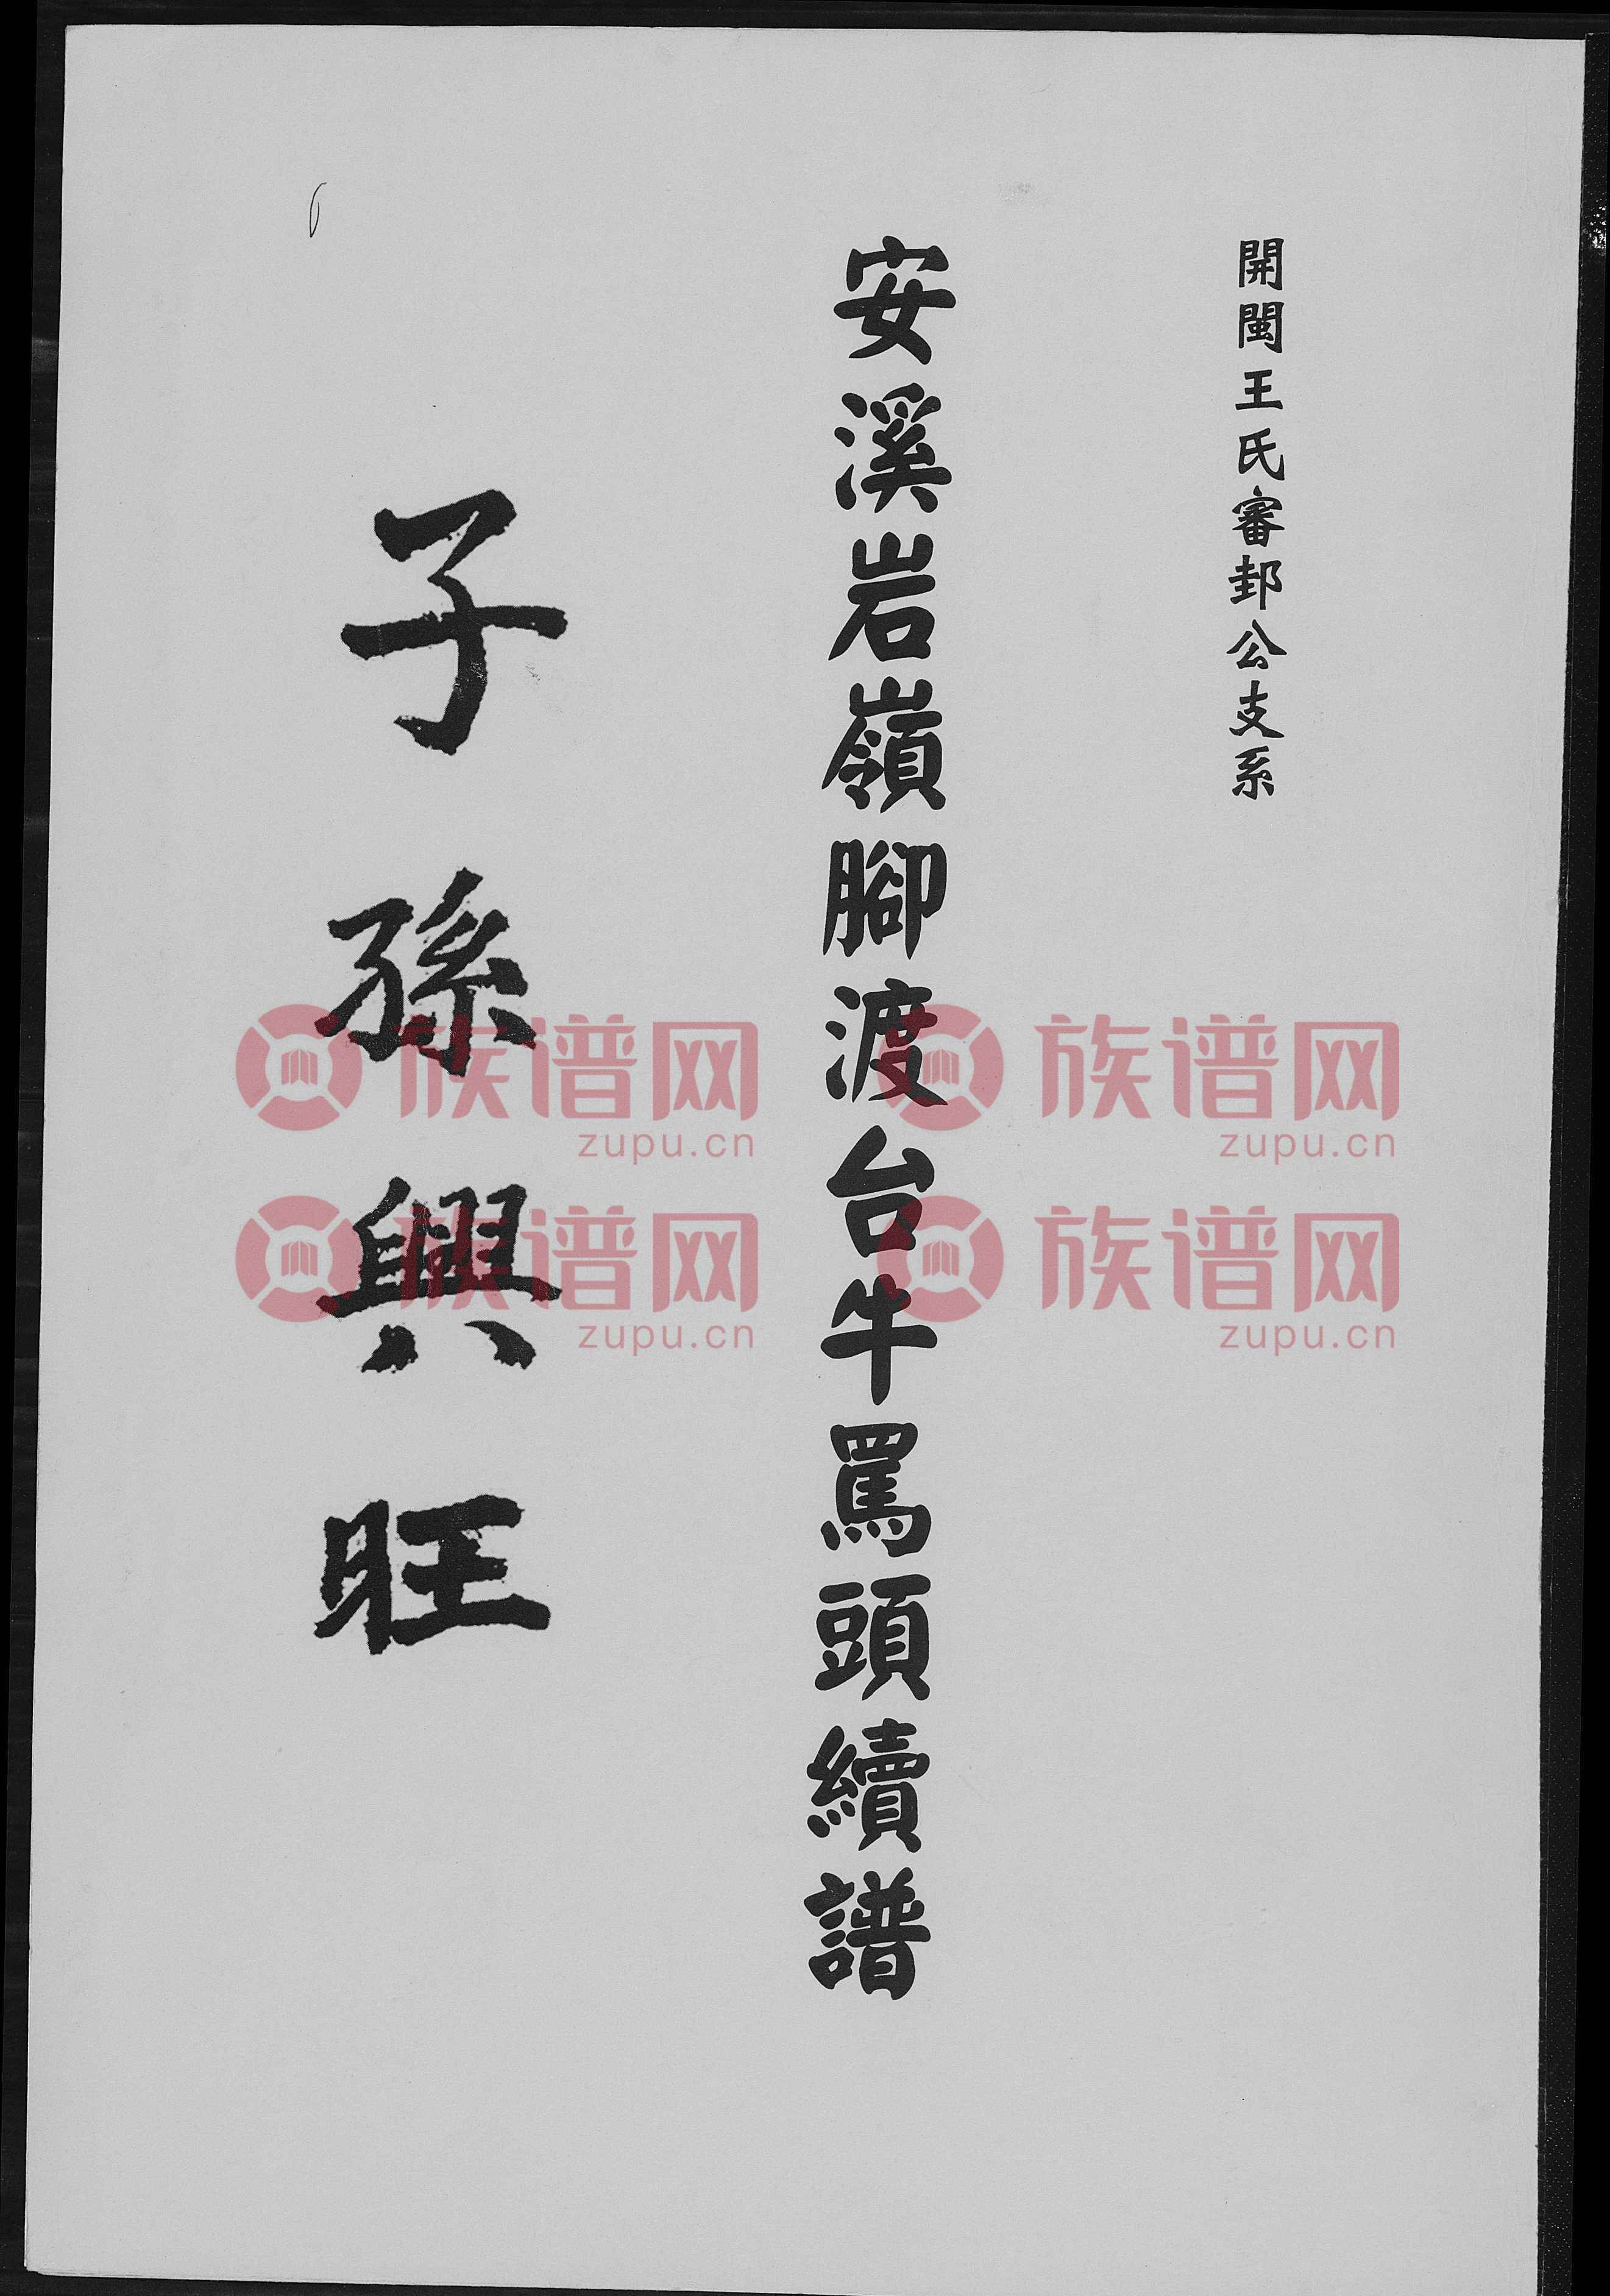 開閩王氏審邽公支系
安溪岩嶺腳渡台牛罵頭續譜
子孫興旺
族谱网
zupu.cn
族谱网
zupu.cn
族谱网
zupu.cn
族谱网
zupu.cn